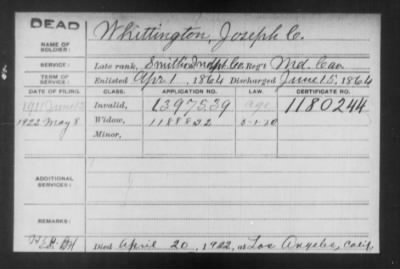 DEAD
NAME OF SOLDIER: Whittington, Joseph C.
SERVICE: Late rank, Smith's Indpt. Co. Reg't Md. Cav.
TERM OF SERVICE: Enlisted Apr 1, 1864 Discharged June 15, 1864
DATE OF FILING. CLASS. APPLICATION NO. LAW. CERTIFICATE NO.
1911 June 12 Invalid, 1397539 age 1180244
1922 May 8 Widow, 1188832 5-1-20
Minor,
ADDITIONAL SERVICES:
REMARKS:
Died April 20, 1922, at Los Angeles, Calif.